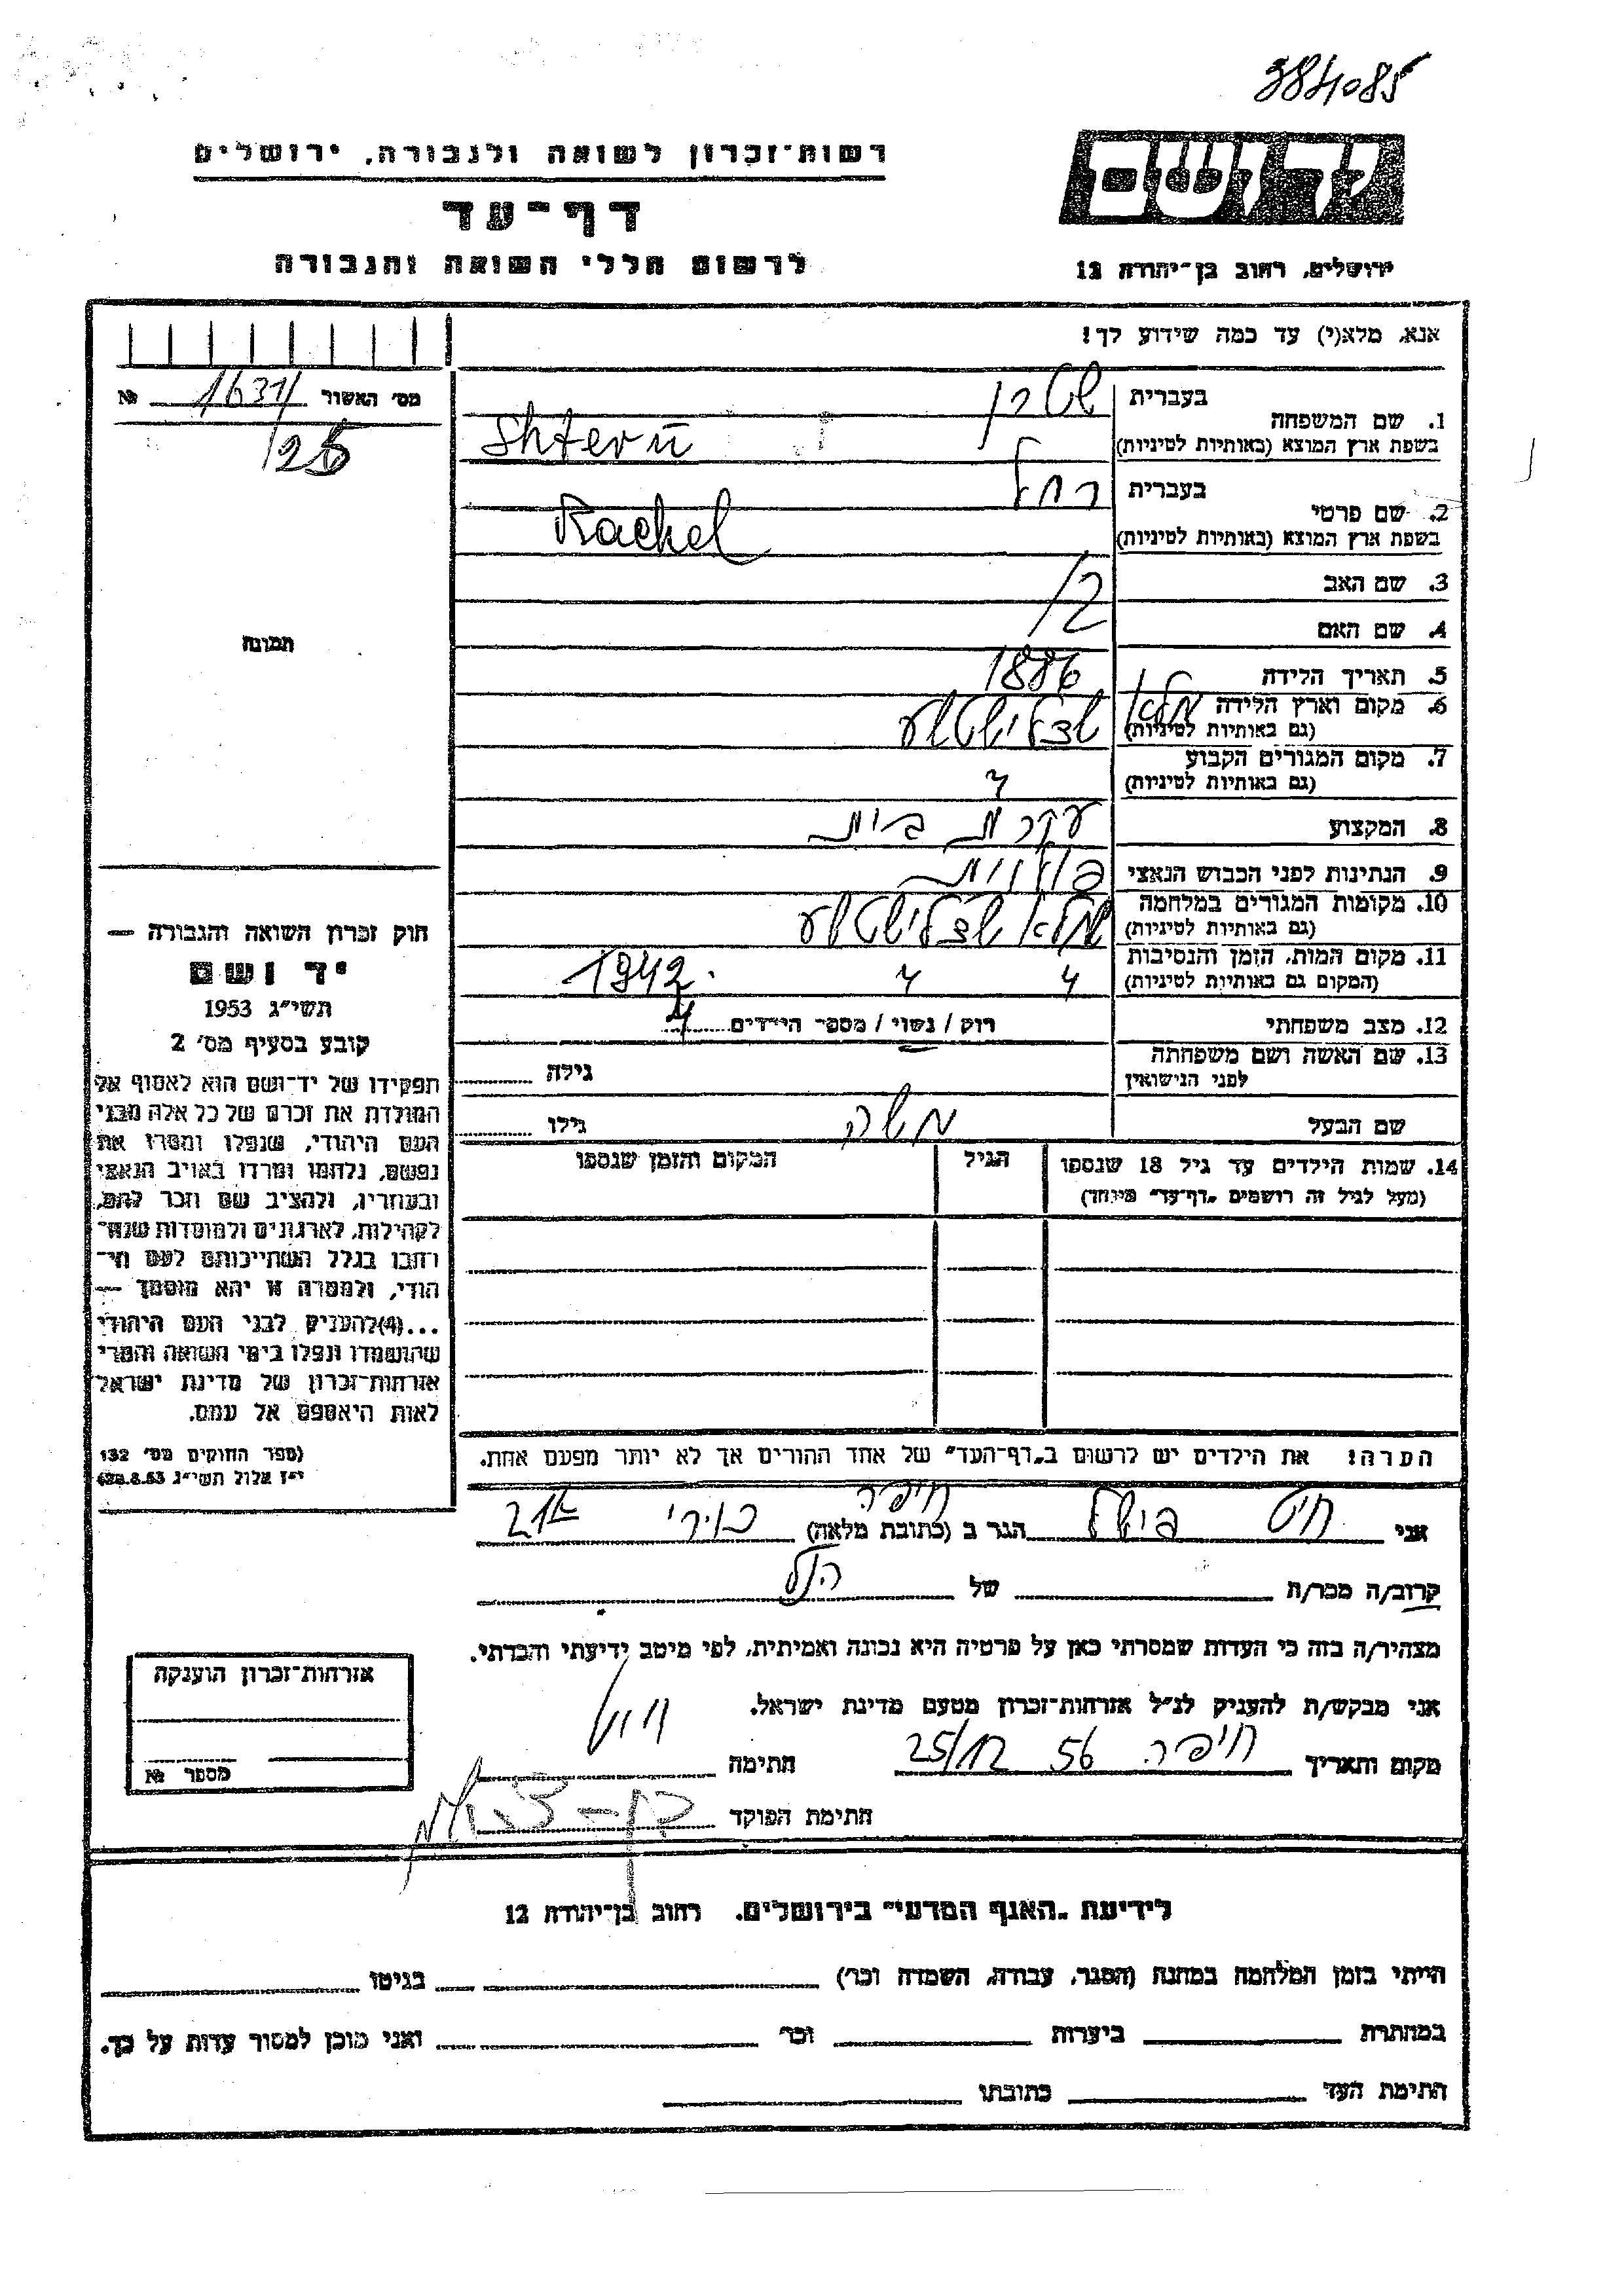 384085
רשות־זכרון לשואה ולגבורה, ירושלים
יד ושם
דף־עד
לרשום חללי השואה והגבורה
ירושלים, רחוב בן־יהודה 12
אנא, מלא(י) עד כמה שידוע לך!
מס׳ האשור 1631 №
125
תמונה
1. שם המשפחה בעברית שטרן
בשפת ארץ המוצא (באותיות לטיניות) Shtern
2. שם פרטי בעברית רחל
בשפת ארץ המוצא (באותיות לטיניות) Rachel
3. שם האב
4. שם האם
5. תאריך הלידה 1886
6. מקום וארץ הלידה
(גם באותיות לטיניות)
7. מקום המגורים הקבוע
(גם באותיות לטיניות)
8. המקצוע עקרת בית
9. הנתינות לפני הכבוש הנאצי פולנית
10. מקומות המגורים במלחמה
(גם באותיות לטיניות)
11. מקום המות, הזמן והנסיבות 1942
(המקום גם באותיות לטיניות)
12. מצב משפחתי רוק / נשוי / מספר הילדים 4
13. שם האשה ושם משפחתה גילה
לפני הנישואין
שם הבעל משה גילו
14. שמות הילדים עד גיל 18 שנספו הגיל המקום והזמן שנספו
(מעל לגיל זה רושמים „דף־עד״ מיוחד)
הערה! את הילדים יש לרשום ב„דף־העד״ של אחד ההורים אך לא יותר מפעם אחת.
חוק זכרון השואה והגבורה —
יד ושם
תשי״ג 1953
קובע בסעיף מס׳ 2
תפקידו של יד־ושם הוא לאסוף אל
המולדת את זכרם של כל אלה מבני
העם היהודי, שנפלו ומסרו את
נפשם, נלחמו ומרדו באויב הנאצי
ובעוזריו, ולהציב שם וזכר להם,
לקהילות, לארגונים ולמוסדות שנח־
רחבו בגלל השתייכותם לעם הי־
הודי, ולמטרה זו יהא מוסמך —
...(4)להעניק לבני העם היהודי
שהושמדו ונפלו בימי השואה והמרי
אזרחות־זכרון של מדינת ישראל
לאות היאספם אל עמם.
(ספר החוקים מס׳ 132
י״ז אלול תשי״ג 28.8.53)
אני הגר ב (כתובת מלאה) חיפה
קרוב/ה מכר/ה של הנ״ל
מצהיר/ה בזה כי העדות שמסרתי כאן על פרטיה היא נכונה ואמיתית, לפי מיטב ידיעתי והכרתי.
אני מבקש/ת להעניק לנ״ל אזרחות־זכרון מטעם מדינת ישראל.
מקום ותאריך חיפה 25/12 56 חתימה
חתימת הפוקד
אזרחות־זכרון הוענקה
מספר №
לידיעת „האגף המדעי״ בירושלים. רחוב בן־יהודה 12
הייתי בזמן המלחמה במחנה (הסגר, עבודה, השמדה וכו׳) בגיטו
במחתרת ביערות וכו׳ ואני מוכן למסור עדות על כך.
חתימת העד כתובתו